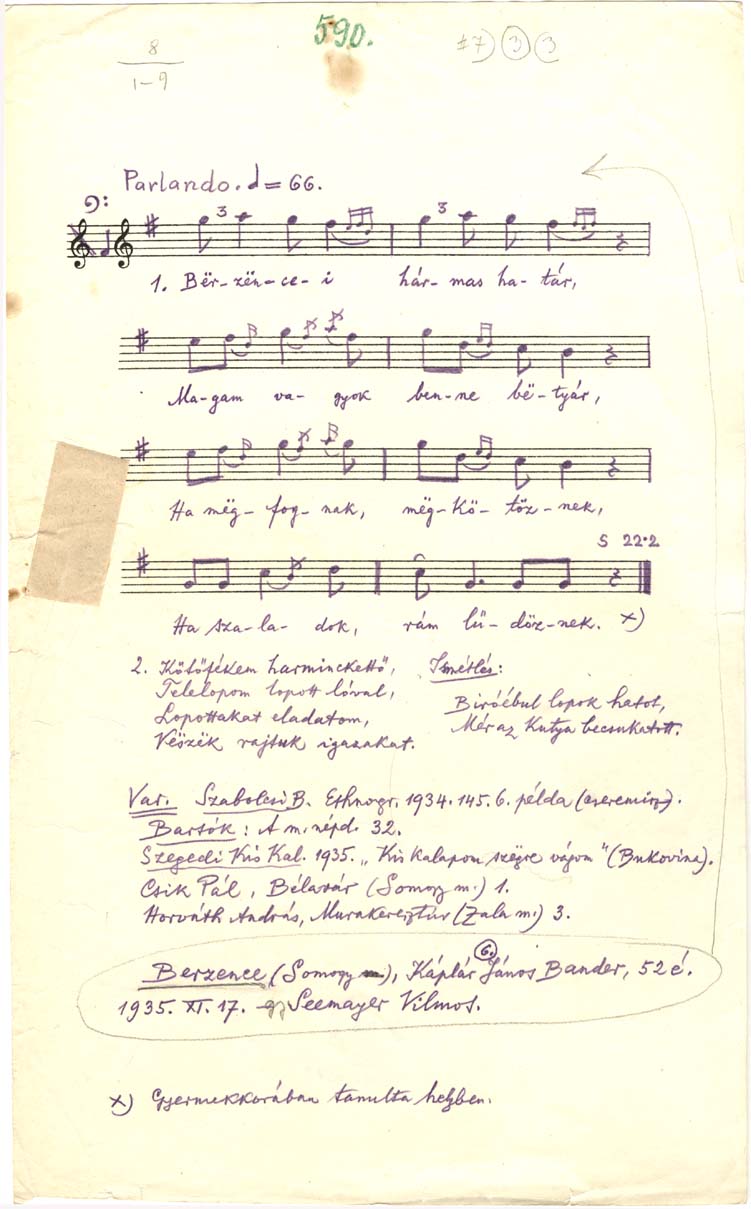 590.
8
1-9
#7) 3 3
Parlando. = 66.
3 3
1. Bër-zën-ce-i hár-mas ha-tár,
Ma-gam va-gyok ben-ne bë-tyár,
Ha mëg-fog-nak, mëg-kö-töz-nek,
S 22·2
Ha sza-la-dok, rám lü-döz-nek. x)
2. Kötőfékem harminckettő, Ismétlés:
Telelopom lopott lóval, Biróébul lopok hatot,
Lopottakat eladatom, Mér az kutya becsukatott.
Vëszëk rajtuk igazakat.
Var. Szabolcsi B. Ethnogr. 1934. 145. 6. példa (cseremisz).
Bartók: A m. népd. 32.
Szegedi Kis Kal. 1935. „Kis kalapom szëgre vágom" (Bukovina).
Csik Pál, Bélavár (Somogy m.) 1.
Horváth András, Murakeresztúr (Zala m.) 3.
Berzence (Somogy m.), Káplár G. János Bander, 52 é.
1935. XI. 17. Seemayer Vilmos.
x) Gyermekkorában tanulta helyben.